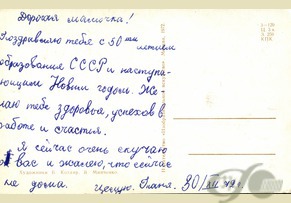 Дорогая мамочка!
Поздравляю тебя с 50ти летием
образования СССР и наступа-
ющим Новым годом. Же
лаю тебе здоровья, успехов в
работе и счастья.
Я сейчас очень скучаю
о вас и жалею, что сейчас
не дома. Целую. Таня. 30/XII 72г.